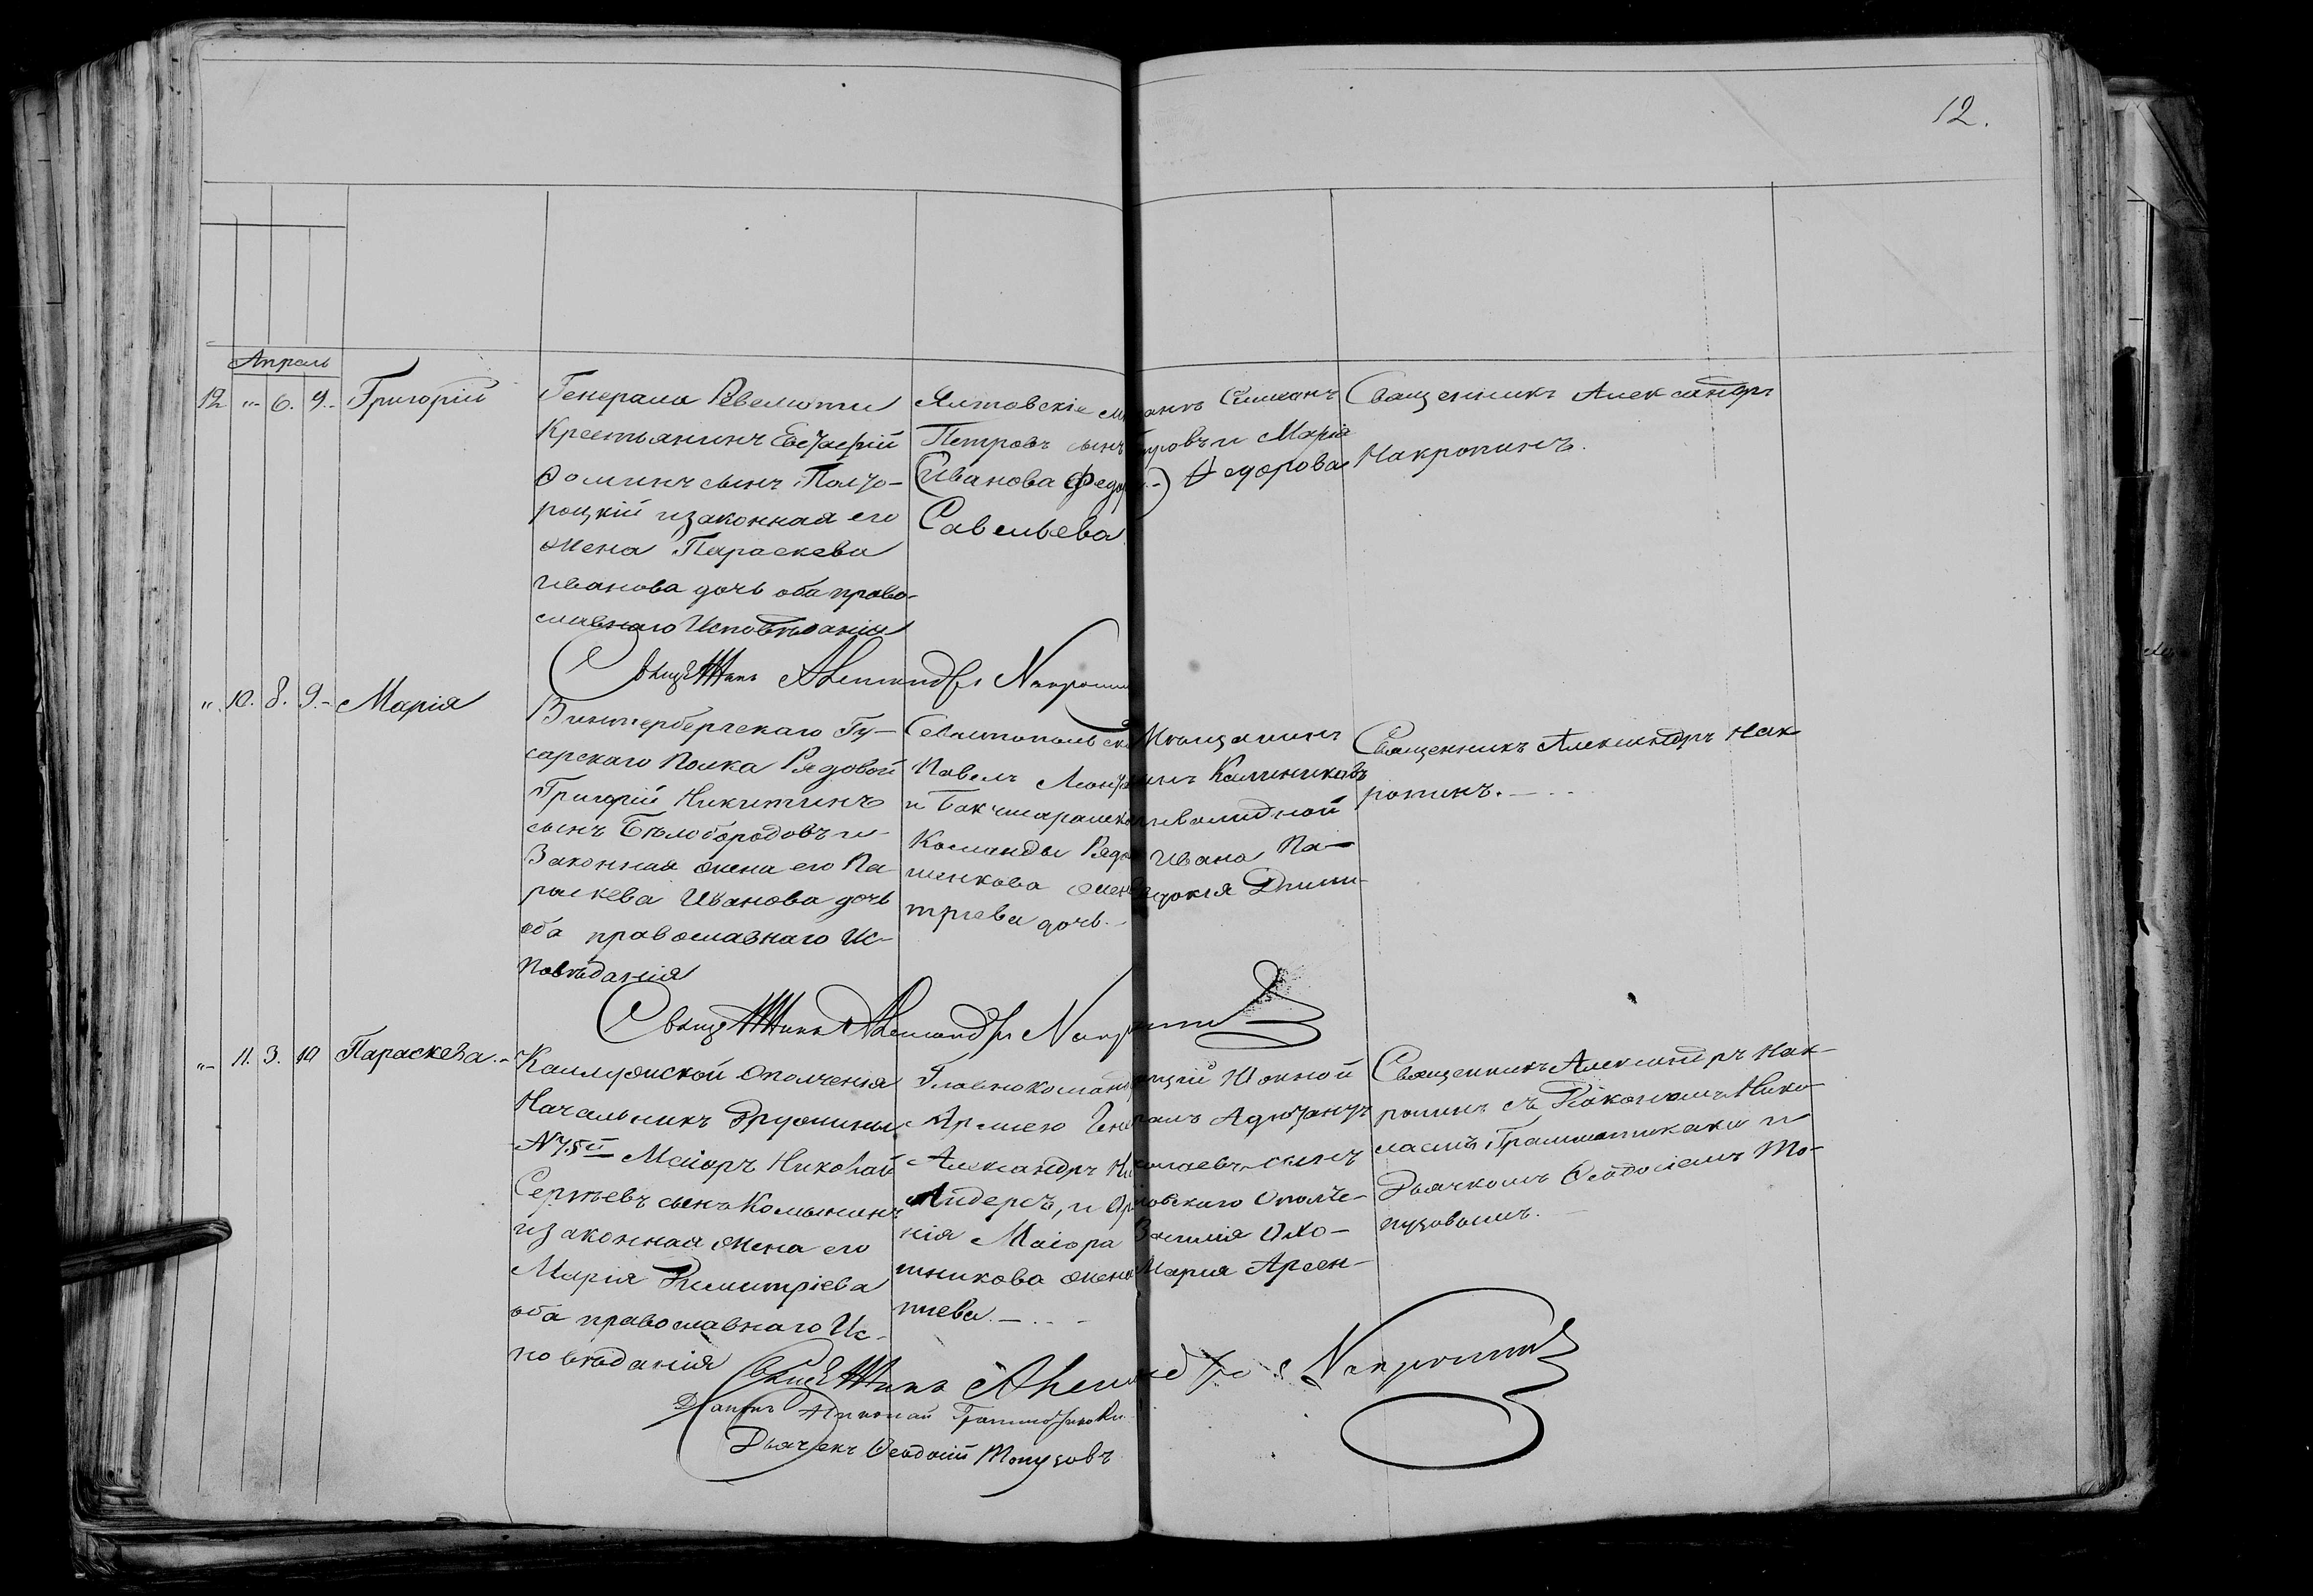 12.
Апрель
12 „ 6. 9. Григорій
Генерала Ревелиоти
Крестьянинъ Евстафій
Фоминъ сынъ Полто-
рацкій и законная его
жена Параскева
Иванова дочь оба право-
славнаго Исповѣданія
Ялтовскіе Симеонъ
Петровъ сынъ и Марія
(Иванова Федо) Федорова
Савельева
Священникъ Александръ
Накропинъ.
Священникъ Александръ Накропинъ
„ 10. 8. 9. Марія
Винтербергскаго Гу-
сарскаго Полка Рядовой
Григорій Никитинъ
сынъ Бѣлобородовъ и
Законная жена его Па-
раскева Иванова дочь
оба православнаго Ис-
повѣданія
Мѣщанинъ
Павелъ Калиниковъ
и инвалидной
Команды Ивана Па-
шенкова Дими-
тріева дочь
Священникъ Александръ Нак
ропинъ.
Священникъ Александръ Накропинъ
„ 11. 3. 10 Параскева.
Калужской Ополченія
Начальникъ Дружины
N 75й Маіоръ Николай
Сергѣевъ сынъ
и законная жена его
Марія Димитріева
оба православнаго Ис-
повѣданія
Главнокомандующій Южной
Арміею Генералъ Адъютантъ
Александръ Николаевъ сынъ
Лидерсъ, и Орловскаго Ополче-
нія Маіора Василія Охо-
тникова жена Марія Арсен-
тіева.
Священникъ Александръ Нак-
ропинъ съ Діакономъ Нико-
лаемъ Грамматикаки и
Дьячкомъ Ѳеодосіемъ То-
пузовымъ.
Священникъ Александръ Накропинъ
Діаконъ Николай Грамматикаки
Дьячекъ Ѳеодосій Топузовъ